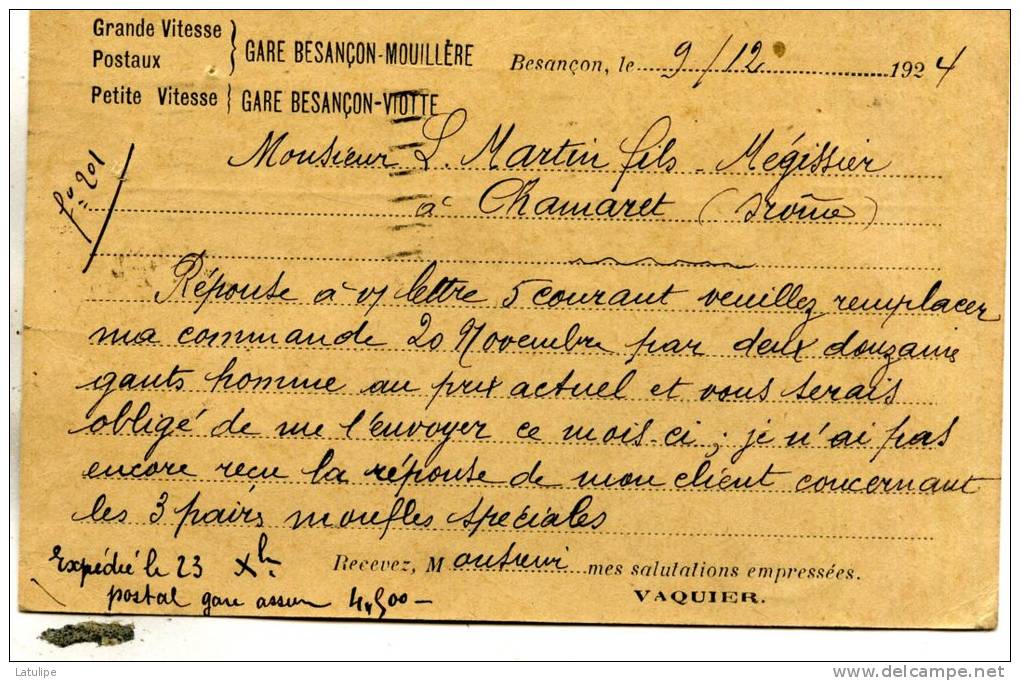 Grande Vitesse
Postaux
GARE BESANÇON-MOUILLÈRE
Petite Vitesse
GARE BESANÇON-VIOTTE
Besançon, le 9/12 1924
Monsieur L. Martin fils - Mégissier
à Chamaret (Drôme)
201
Réponse à v/ lettre 5 courant veuillez remplacer
ma commande 20 Novembre par deux douzaine
gants homme au prix actuel et vous serais
obligé de me l'envoyer ce mois-ci ; je n'ai pas
encore reçu la réponse de mon client concernant
les 3 pairs moufles spéciales
Recevez, Monsieur mes salutations empressées.
VAQUIER.
Expédié le 23 Xbre
postal gare assur
Latulipe
www.delcampe.net